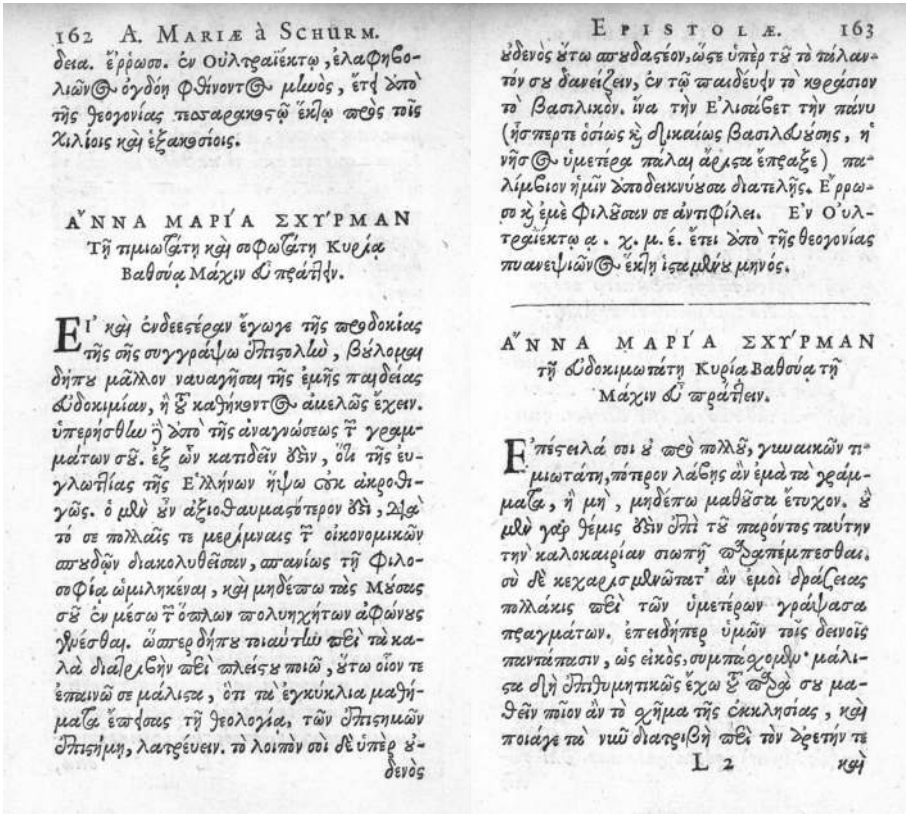 162 A. MARIÆ à SCHURM.
δεια. ἔρρωσο. ἐν Οὐλτραϊέκτῳ, ἐλαφηβο-
λιῶνος ὀγδόῃ φθίνοντος μηνὸς, ἔτει ἀπὸ
τῆς θεογονίας τεσσαρακοστῷ ἕκτῳ πρὸς τοῖς
χιλίοις καὶ ἑξακοσίοις.
ἌΝΝΑ ΜΑΡΊΑ ΣΧΎΡΜΑΝ
Τῇ τιμιωτάτῃ καὶ σοφωτάτῃ Κυρίᾳ
Βαθσύᾳ Μάχιν εὖ πράττειν.
ΕΙ᾽ καὶ ἐνδεεστέραν ἔγωγε τῆς προδοκίας
τῆς σῆς συγγράψω ἐπιστολὴν, βούλομαι
δήπου μᾶλλον ναυαγῆσαι τῆς ἐμῆς παιδείας
εὐδοκιμίαν, ἢ τοῦ καθήκοντος ἀμελῶς ἔχειν.
ὑπερήσθην γὰρ ἀπὸ τῆς ἀναγνώσεως τῶν γραμ-
μάτων σοῦ. ἐξ ὧν κατιδεῖν ἐστὶν, ὅτι τῆς ευ-
γλωττίας τῆς Ἑλλήνων ἥψω οὐκ ἀκροθι-
γῶς. ὁ μὲν οὖν ἀξιοθαυμαστότερον ἐστὶ, διὰ
τό σε πολλαῖς τε μερίμναις τῶν οἰκονομικῶν
σπουδῶν διακολυθεῖσαν, σπανίως τῇ Φιλο-
σοφίᾳ ὡμιληκέναι, καὶ μηδέπω τὰς Μούσας
σοῦ ἐν μέσω τῶν ὅπλων πολυηχήτων ἀφώνους
γενέσθαι. ὥσπερ δήπου τοιαύτην περὶ τὰ κα-
λὰ διατριβὴν περὶ πλείστου ποιῶ, οὕτω οἷον τε
ἐπαινῶ σε μάλιστα, ὅτι τὰ ἐγκύκλια μαθή-
ματα ἔπεισας τῇ θεολογίᾳ, τῶν ἐπιστημῶν
ἐπιστήμῃ, λατρεύειν. τὸ λοιπόν σοι δὲ ὑπὲρ οὐ-
δενὸς
EPISTOLÆ. 163
οὐδενὸς οὕτω σπουδαστέον, ὥστε ὑπὲρ τοῦ τὸ τάλαν-
τόν σου δανείζειν, ἐν τῷ παιδεύειν τὸ κοράσιον
τὸ βασιλικὸν. ἵνα τὴν Ἐλισάβετ τὴν πάνυ
(ἧς περ τε ὁσίως καὶ δικαίως βασιλευούσης, ἡ
νῆσος ὑμετέρα πάλαι ἄριστα ἔπραξε) πα-
λίμβιον ἡμῖν ἀποδεικνύουσα διατελῇς. Ἔρρω-
σο καὶ ἐμὲ φιλοῦσαν σε ἀντιφίλει. Ἐν Οὐλ-
τραϊέκτῳ α. χ. μ. έ. ἔτει ἀπὸ τῆς θεογονίας
πυανεψιῶνος ἕκτῃ ἱσταμένου μηνός.
ἌΝΝΑ ΜΑΡΊΑ ΣΧΎΡΜΑΝ
τῇ εὐδοκιμωτάτῃ Κυρίᾳ Βαθσύᾳ τῇ
Μάχιν εὖ πράττειν.
Ἐπέστειλά σοι οὐ πρὸ πολλοῦ, γυναικῶν τι-
μιωτάτη, πότερον λάβῃς ἂν ἐμὰ τὰ γράμ-
ματα, ἢ μὴ, μηδέπω μαθοῦσα ἔτυχον. οὐ
μὲν γὰρ θέμις ἐστὶν ἐπὶ τοῦ παρόντος ταύτην
τὴν καλοκαιρίαν σιωπῇ παραπέμπεσθαι.
σὺ δὲ κεχαρισμένωτατ᾽ ἂν ἐμοὶ δράσειας
πολλάκις περὶ τῶν ὑμετέρων γράψασα
πραγμάτων. ἐπειδήπερ ὑμῶν τοῖς δεινοῖς
παντάπασιν, ὡς εἰκὸς, συμπάσχομεν· μάλι-
στα δὴ ἐπιθυμητικῶς ἔχω τοῦ παρὰ σου μα-
θεῖν ποῖον ἂν τὸ σχῆμα τῆς ἐκκλησίας, καὶ
ποιάγε τὰ νῦν διατριβὴ περὶ τὸν ἀρετήν τε
L 2 καὶ